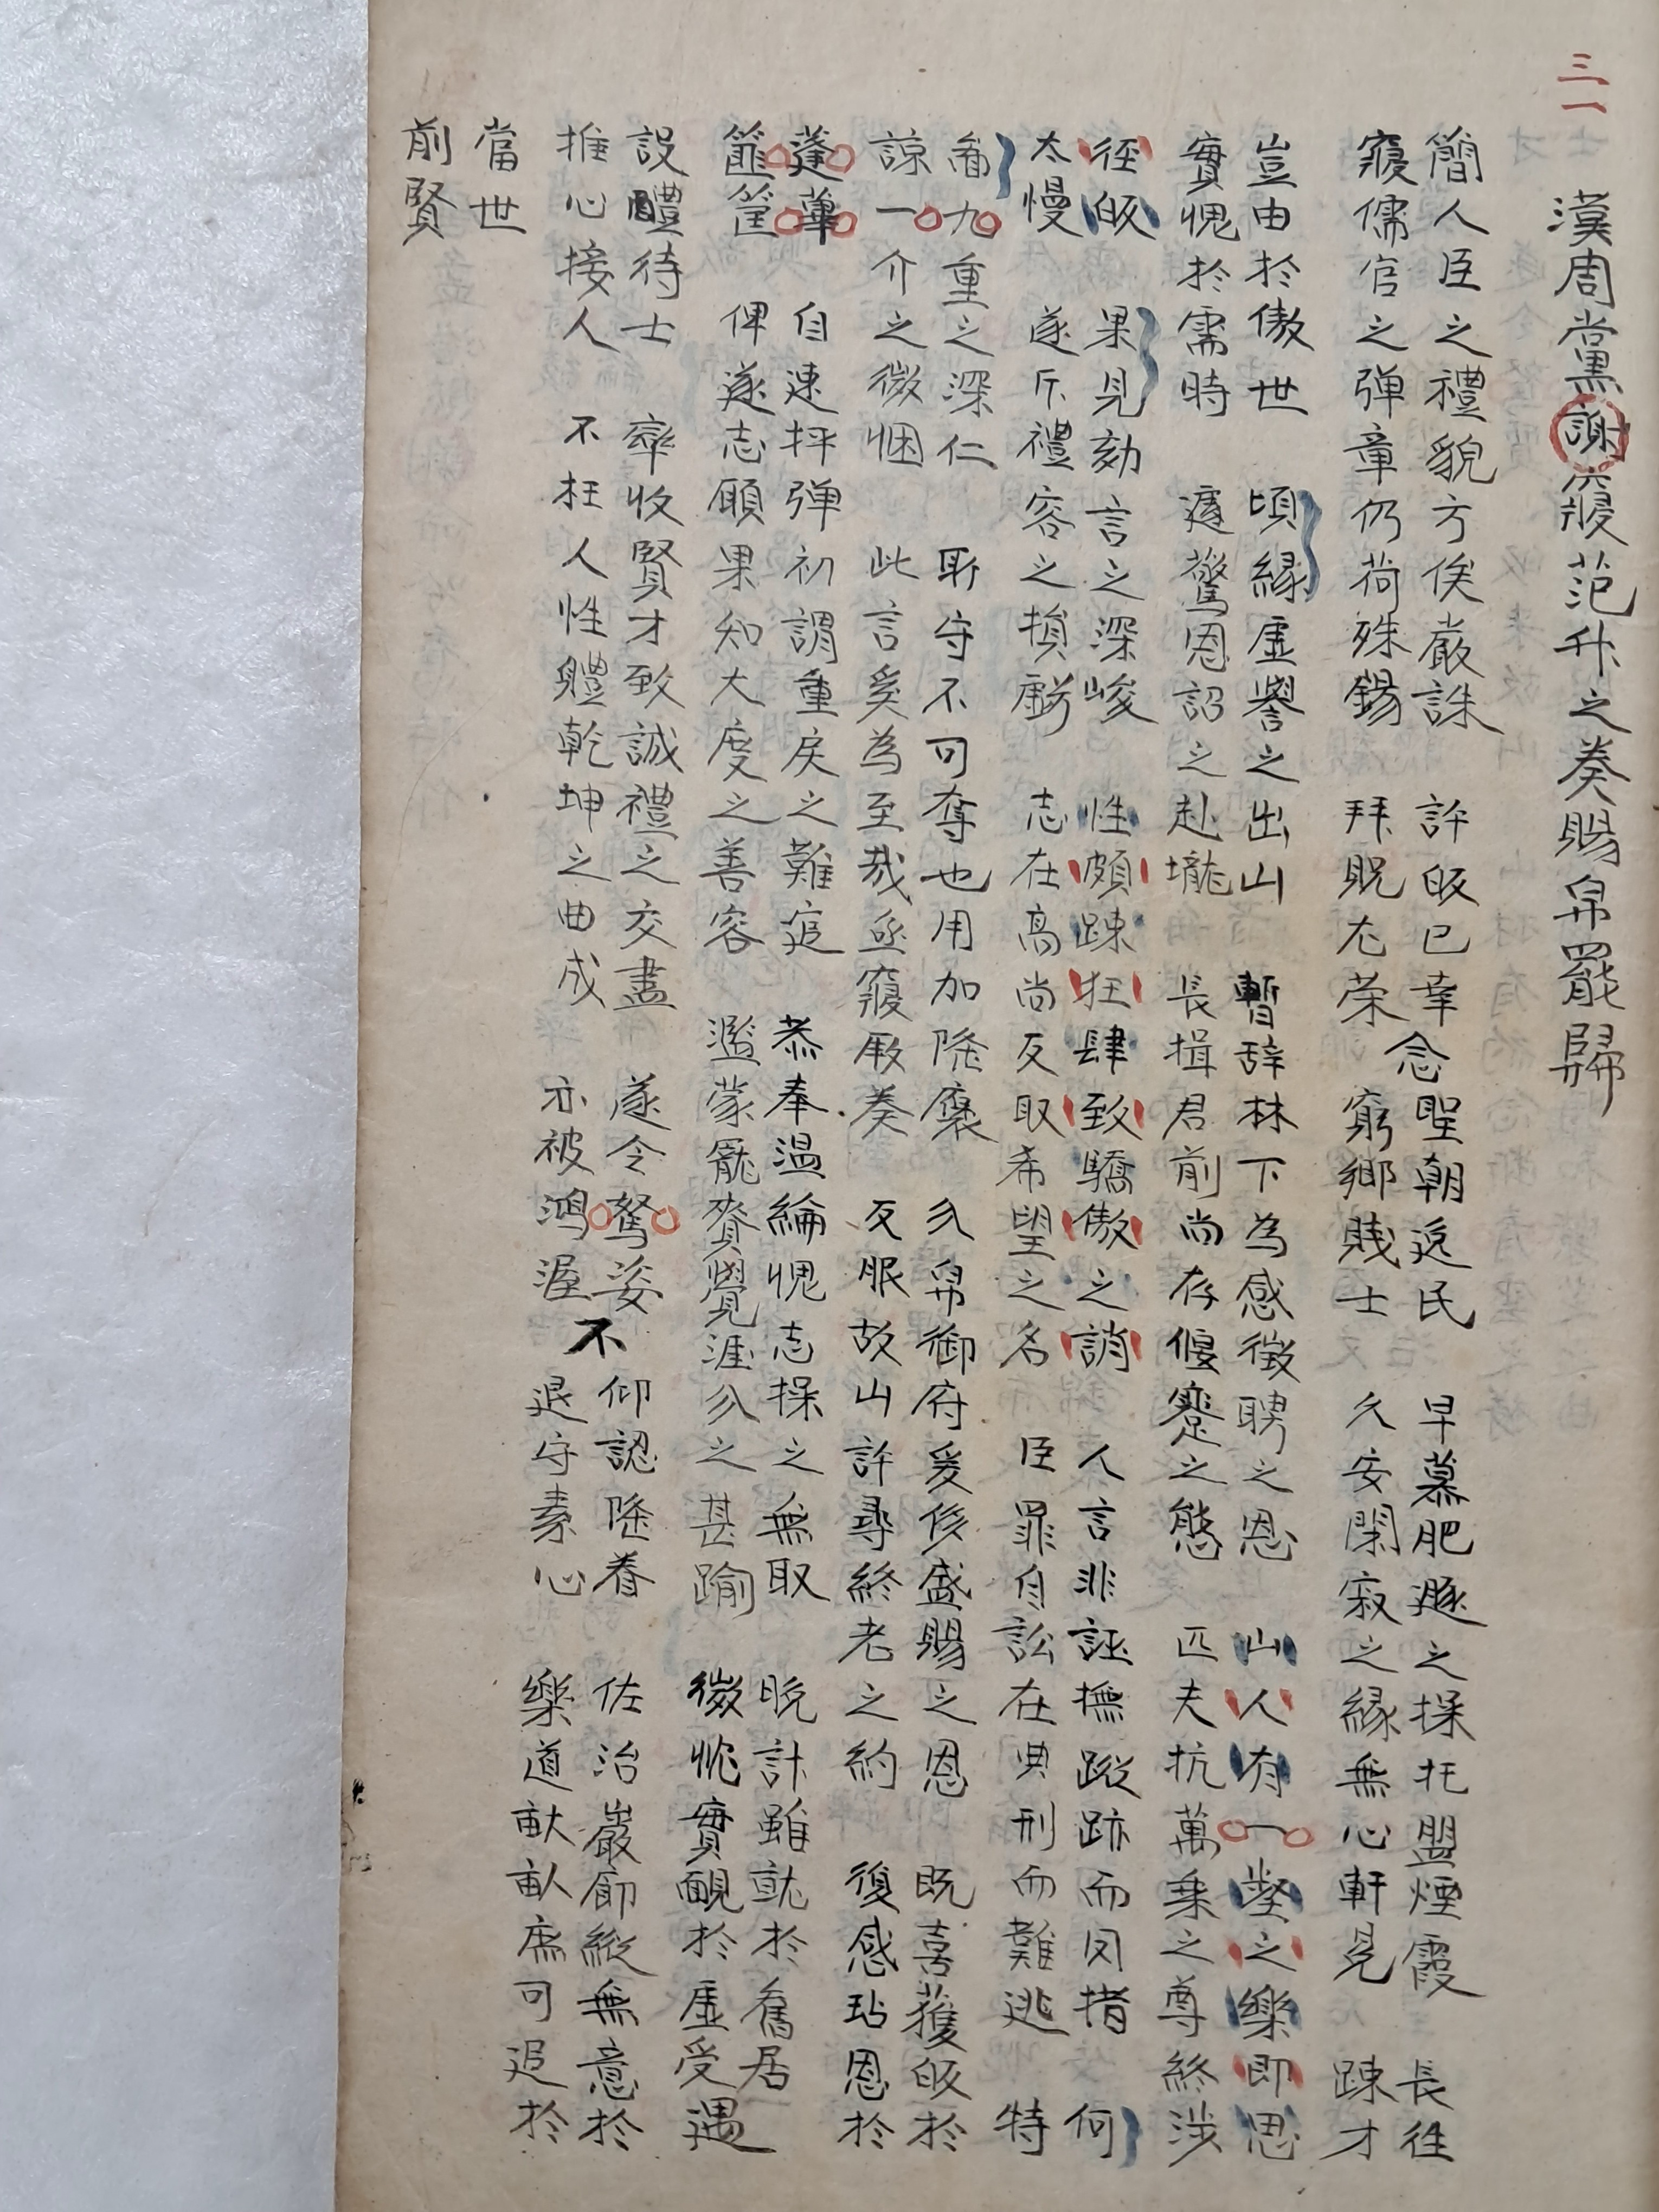 三一
漢周黨謝寢范升之奏賜帛罷歸
簡人臣之禮貌方俟嚴誅 許皈已幸 念聖朝逸民 早慕肥遯之操托盟煙霞 長往
寢儒官之弹章仍荷殊錫 拜貺尤荣 窮鄉賤士 久安閑寂之緣無心軒冕 踈才
豈由於傲世 頃縁虛譽之出山 暫辞林下為感徵聘之恩 山人有一壑之樂即思
實愧於需時 遽驚恩詔之赴壠 長揖君前尚存偃蹇之態 匹夫抗萬乗之尊終涉
径皈 果見劾言之深峻 性頗踈狂肆致驕傲之誚 人言非誣撫蹤跡而罔措 何
太慢 遂斥禮容之損虧 志在高尚反取希望之名 臣罪自訟在典刑而難逃 特
九重之深仁 所守不可奪也用加隆褒 分帛御府爰侈盛賜之恩 既喜獲皈於
諒一介之微悃 此言奚為至哉亟寢厥奏 反服故山許尋終老之約 復感玷恩於
蓬蓽 自速抨弹初謂重戾之難逭 恭奉温綸愧志操之無取 晩計雖就於舊居
篚筐 俾遂志願果知大度之善容 濫蒙寵賚覺涯分之甚踰 微忱實靦於虛受 遇
設醴待士 率收賢才致誠禮之交盡 遂令駑姿 仰認隆眷 佐治巖廊縱無意於
推心接人 不枉人性體乾坤之曲成 亦被鴻渥 不 退守素心 樂道畎畝庶可追於
當世
前賢